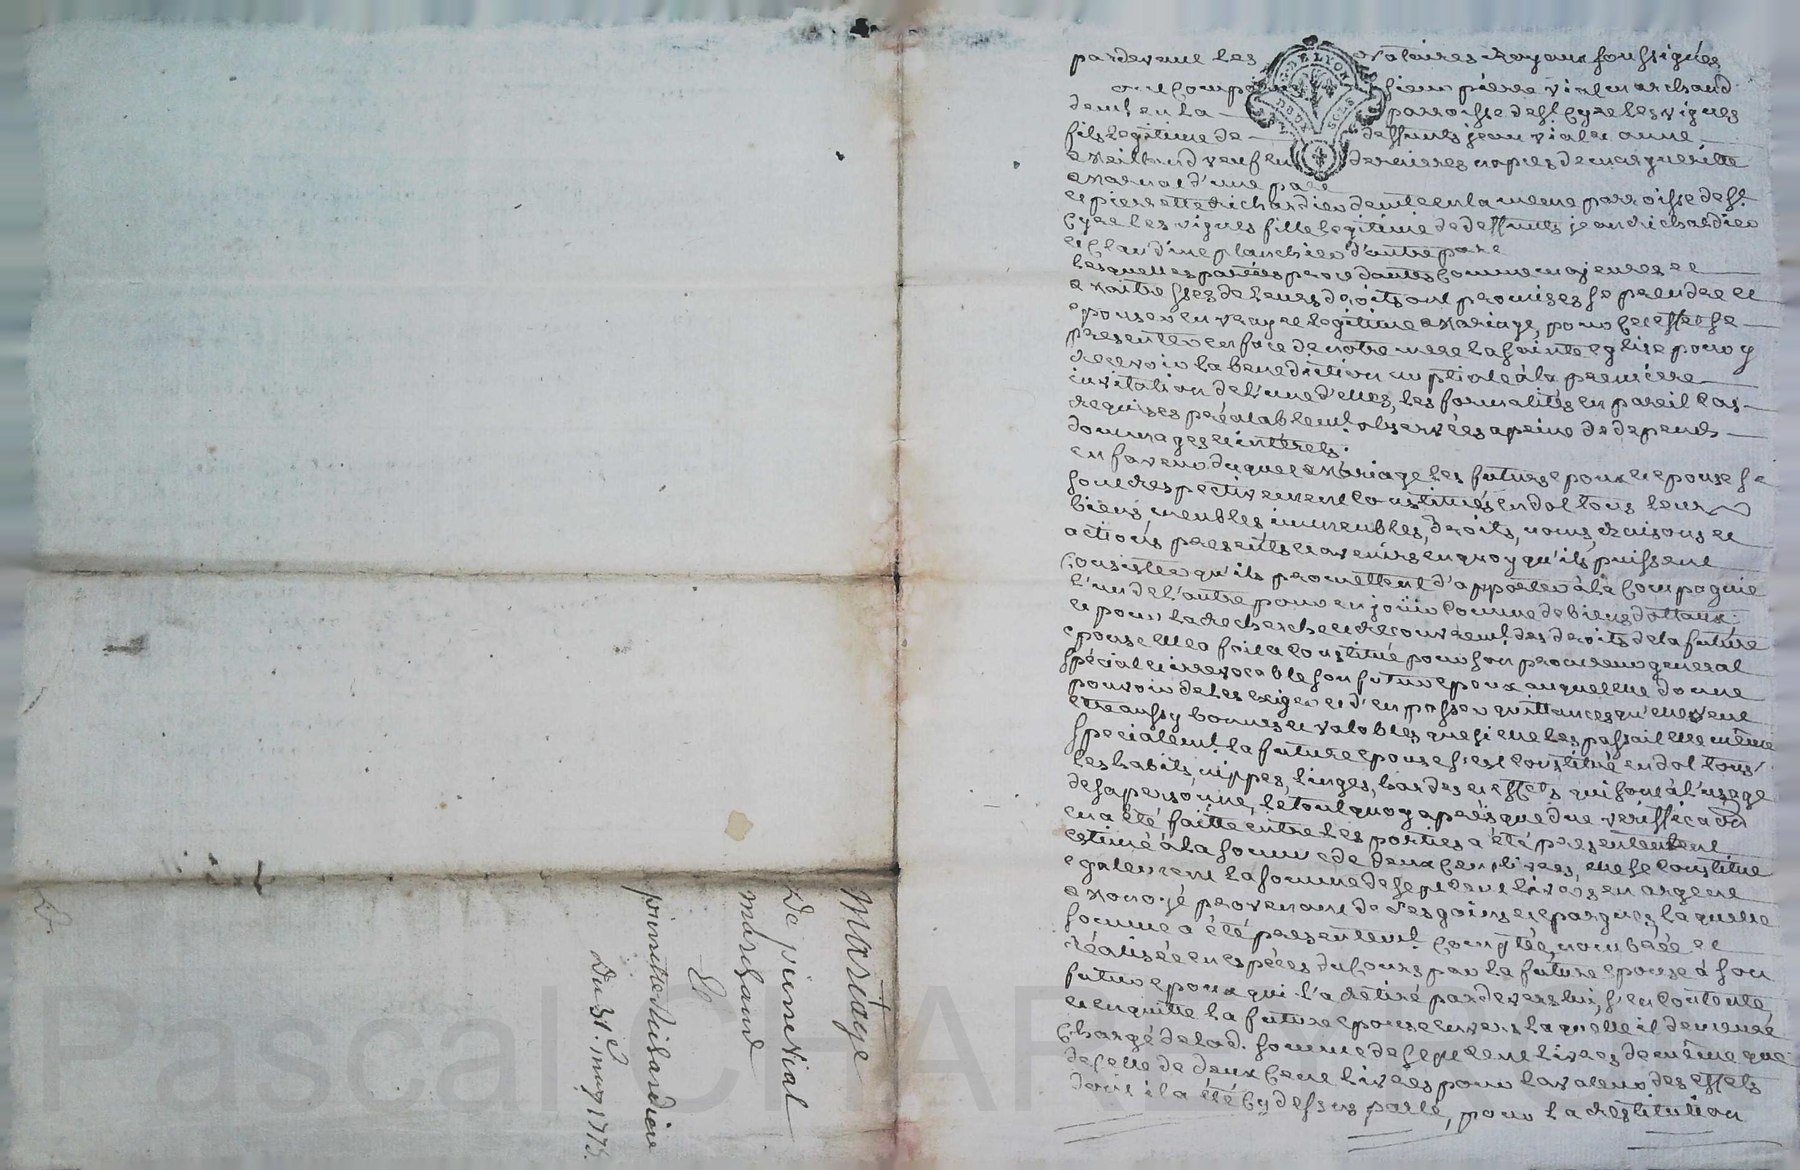 Mariage
De pierre Vial
marchand
Et
pierrette Richardiere
Du 31e. may 1773.
pardevant les Notaires Royaux soussignés
G. DE LYON
NEUF SOLS
ont comparu sieur pierre vial marchand
demt en la paroisse de st Cyr les vignes
fils legitime de deffunts jean vial et anne
Meilland veuf en dernieres nopces de margueritte
d'une part
et pierrette Richardier demte en la meme parroisse de st.
Cyr les vignes fille legitime de deffunts jean Richardier
et Claudine planchier d'autre part
Lesquelles parties procedantes comme majeures et
Maitresses de leurs droits ont promises se prendre et
epouser en vray et legitime Mariage, pour cet effet se
presenter en face de notre mere la sainte eglise pour y
recevoir la benediction nuptiale à la premiere
invitation de l'une d'elles, les formalités en pareil cas
requises préalablemt. observées a peine de depends
dommages et intérets.
en faveur duquel Mariage les futurs epoux et epouse se
sont respectivement constitués en dot tous leurs
biens meubles immeubles, droits, noms, raisons et
actions presents et avenirs en quoy qu'ils puissent
Consister qu'ils promettent d'apporter à la Compagnie
l'un de l'autre pour en joüir comme de biens dottaux:
et pour la recherche et recouvremt. des droits de la future
epouse elle a fait et constitué pour son procureur general
spécial et irrevocable son futur epoux auquel elle donne
pouvoir de les exiger et d'en passer quittances qu'elle veut
etre aussy bonnes et valables que si elle les passait elle même
specialemt. la future epouse s'est constitué en dot tous
les habits, nippes, linges, hardes et effets qui sont à l'usage
de sa personne, le tout quoy après que due vérification
en a été faitte entre les parties a été presentement
estimé à la somme de deux cent livres, elle se constitue
egalement la somme de sept cent livres en argent
Monoyé provenant de ses gains et epargnes, laquelle
somme a été presentemt. comptée, nombrée et
réalisée en espéces du cours par la future epouse à son
futur epoux qui l'a retiré pardevers lui, s'en contente,
et en quitte la future epouse envers laquelle il demeure
Chargé de lad. somme de sept cent livres de même que
de celle de deux cent livres pour la valeur des effets
dont il a été cy dessus parlé, pour la restitution
Pascal CHARETRON